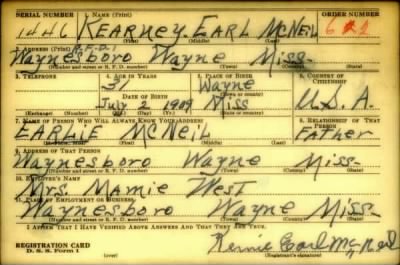 SERIAL NUMBER 1. NAME (Print) ORDER NUMBER
1446 KEARNEY EARL McNEIL
(First) (Middle) (Last)
2. ADDRESS (Print) R.F.D.1
Waynesboro Wayne Miss.
(Number and street or R. F. D. number) (Town) (County) (State)
3. TELEPHONE 4. AGE IN YEARS 5. PLACE OF BIRTH 6. COUNTRY OF CITIZENSHIP
31 Wayne
DATE OF BIRTH (Town or county)
July 2 1909 Miss U.S.A.
(Exchange) (Number) (Mo.) (Day) (Yr.) (State or country)
7. NAME OF PERSON WHO WILL ALWAYS KNOW YOUR ADDRESS 8. RELATIONSHIP OF THAT PERSON
EARLIE McNeil Father
(Mr., Mrs., Miss) (First) (Middle) (Last)
9. ADDRESS OF THAT PERSON
Waynesboro Wayne Miss.
(Number and street or R. F. D. number) (Town) (County) (State)
10. EMPLOYER'S NAME
Mrs. Mamie West
11. PLACE OF EMPLOYMENT OR BUSINESS
Waynesboro Wayne Miss.
(Number and street or R. F. D. number) (Town) (County) (State)
I AFFIRM THAT I HAVE VERIFIED ABOVE ANSWERS AND THAT THEY ARE TRUE.
REGISTRATION CARD
D. S. S. Form 1 (over) Earl McNeil
(Registrant's signature)